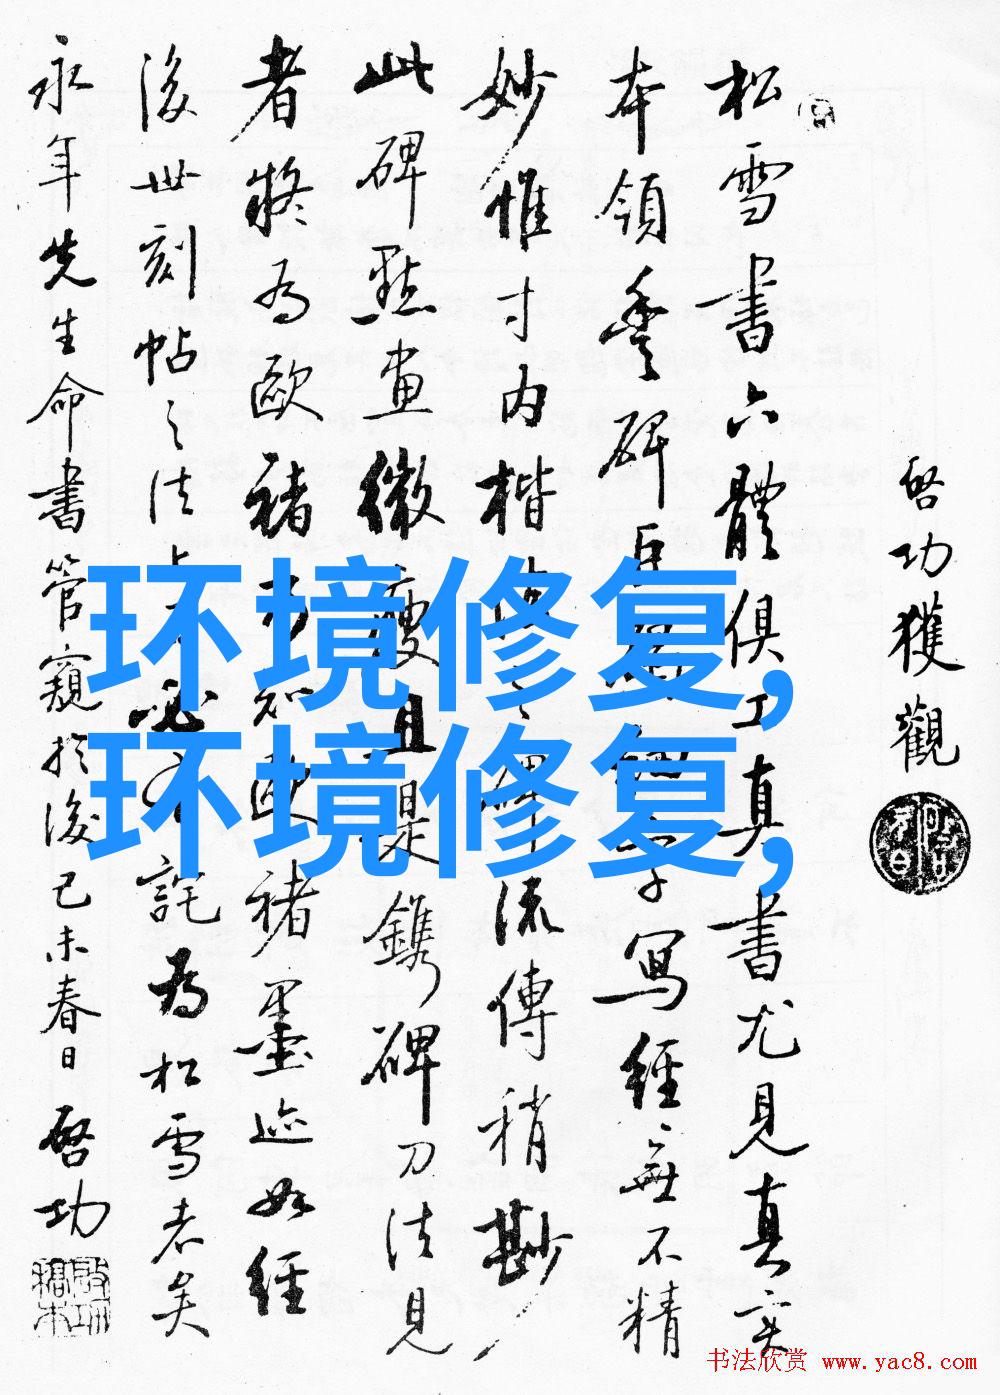 啓功獲觀
松雪書六體俱工真書尤見真實
本領豐碑巨字寫經無不精
妙惟寸内楷碑流傳稍尠
此碑點畫微瘦且是鐫碑刀法見
者將為歐褚歐褚墨迹如經
後世刻帖之法詫為松雪老矣
永年先生命書管窺於後己未春日啓功
环境修复,
环境修复,
书法欣赏 www.yac8.com